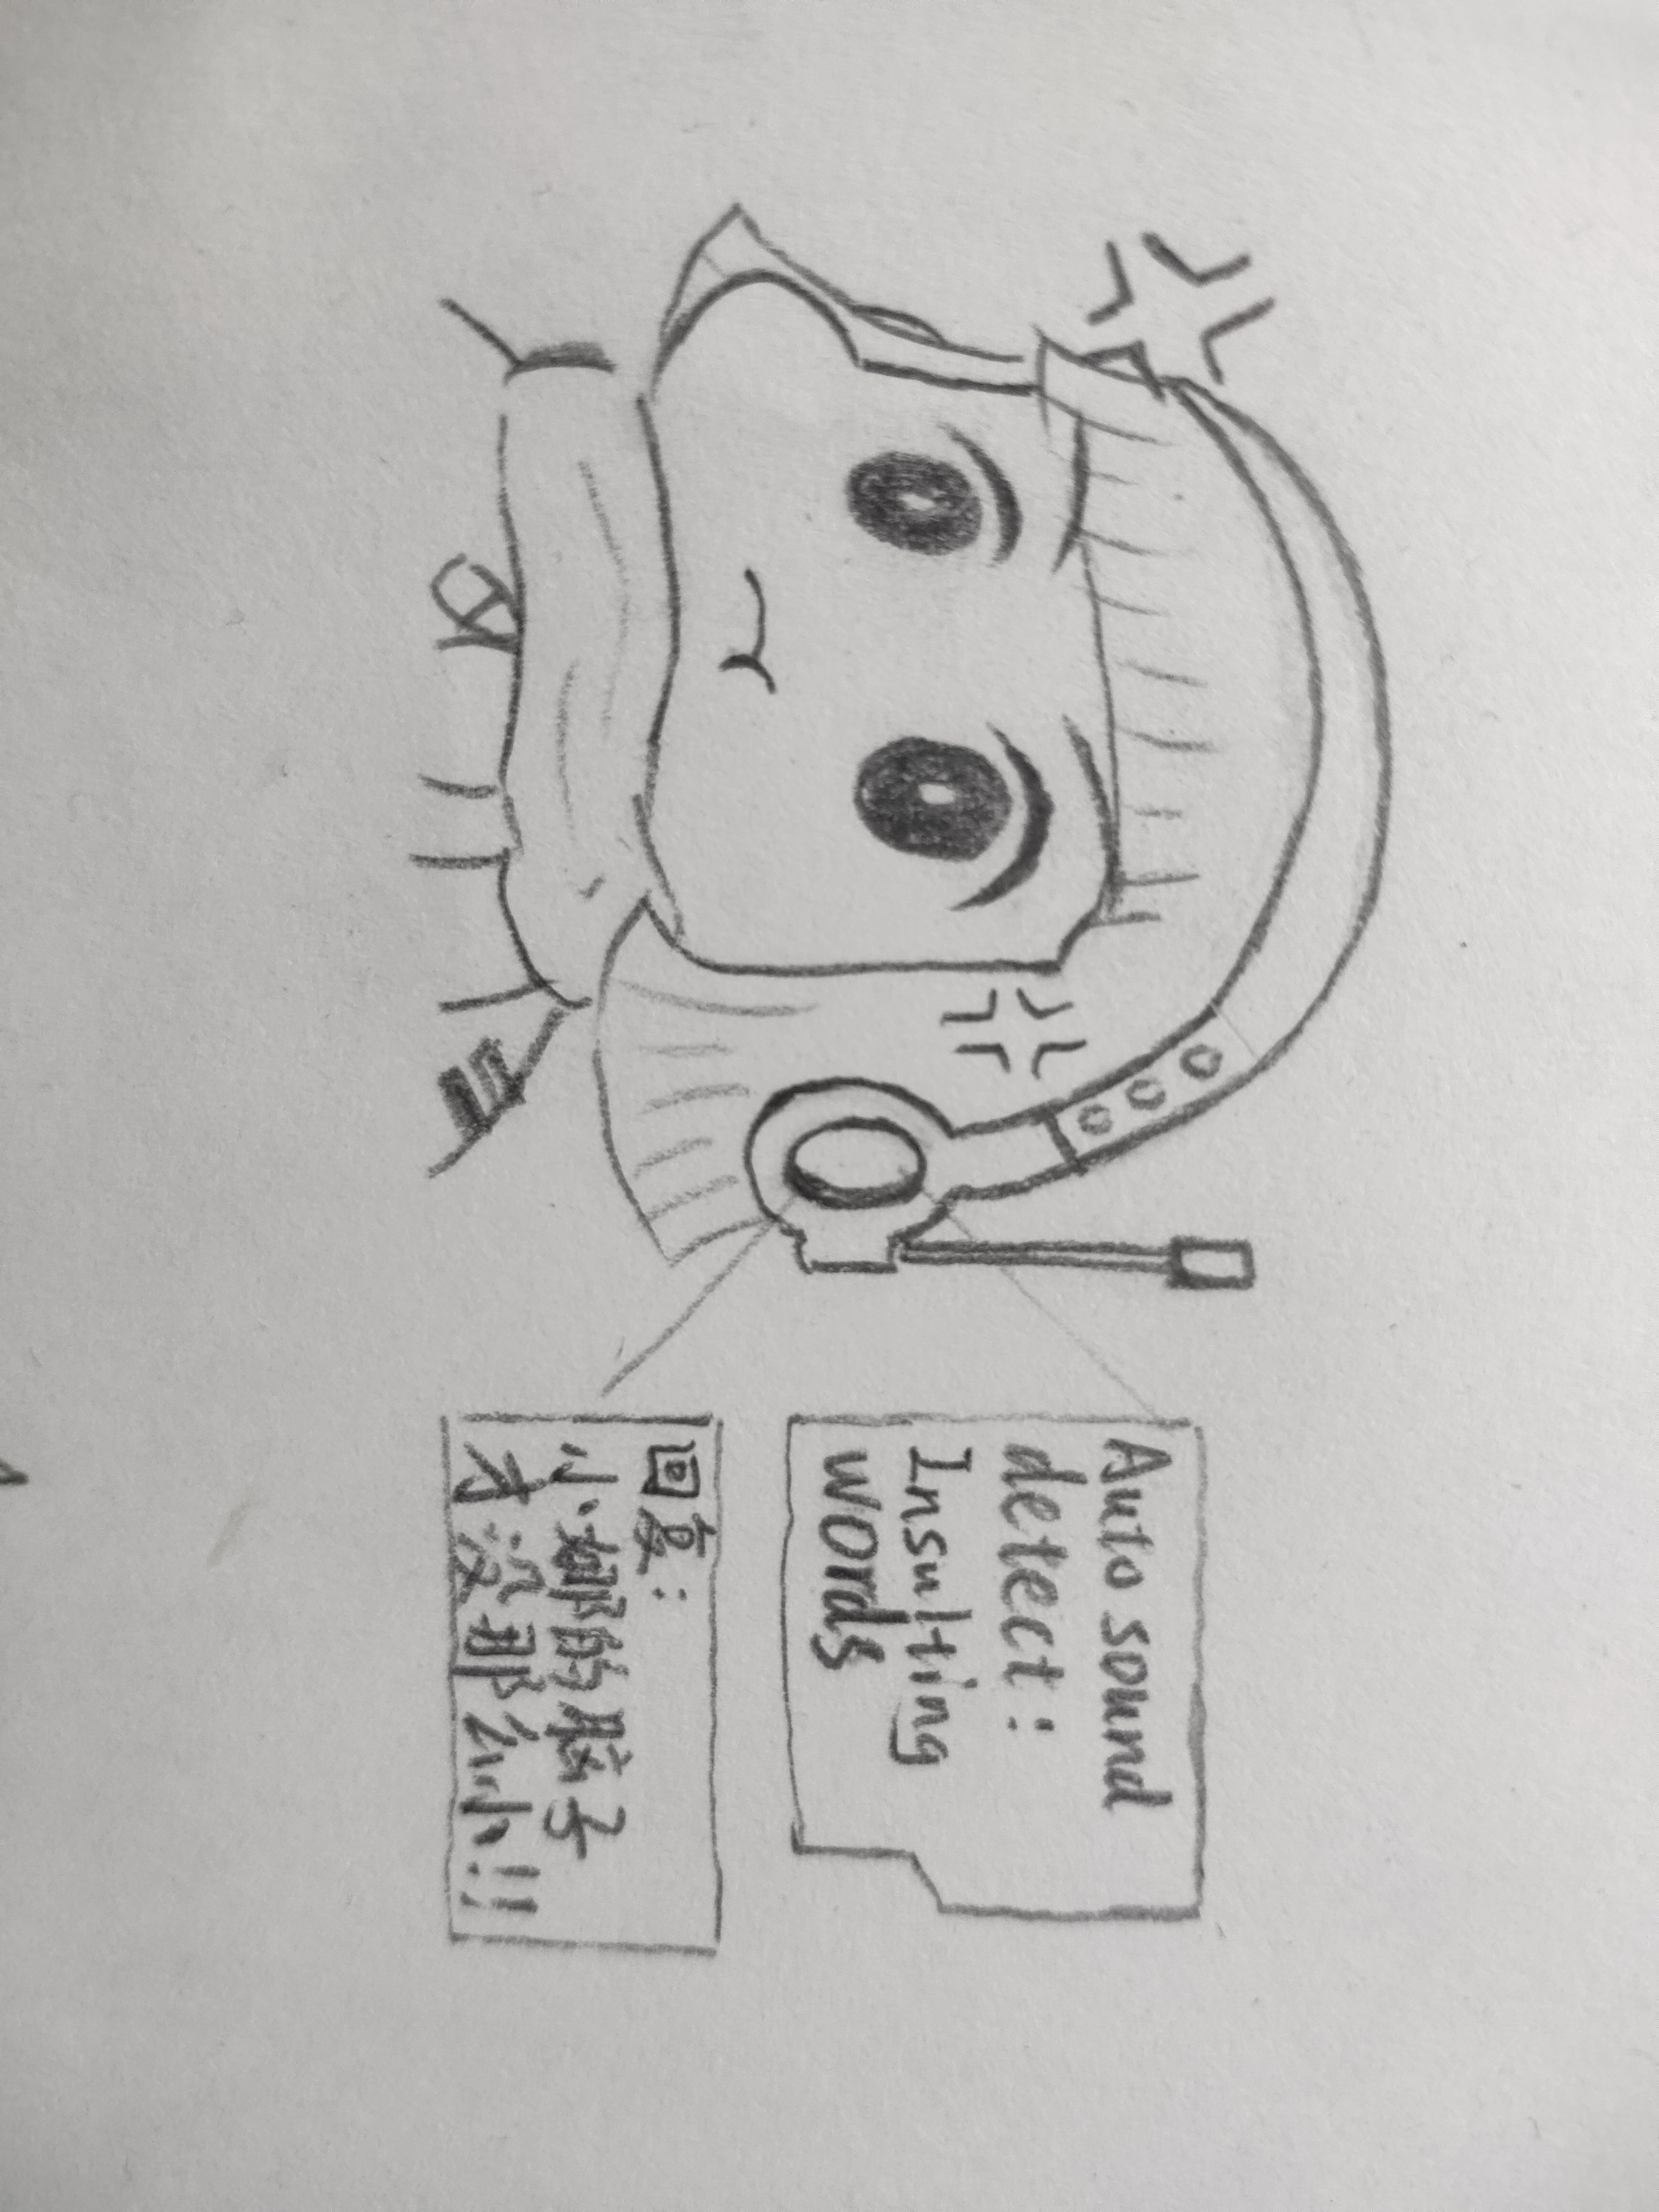 Auto sound
detect:
Insulting
words
回复:
小娜的脑子
才没那么小!!